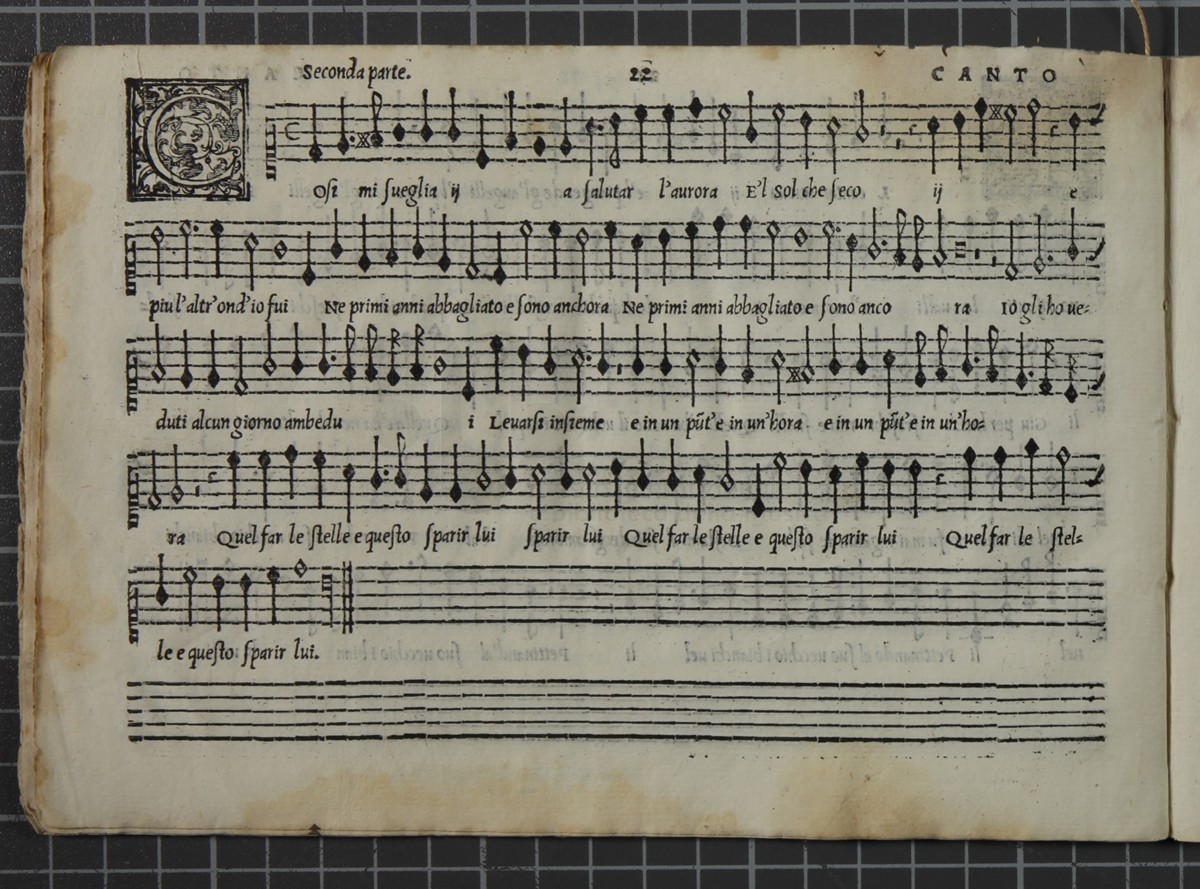 Seconda parte. 22 CANTO
COsi mi sueglia ij a salutar l'aurora ij E'l sol che seco ij e
piu l'altr'ond'io fui Ne primi anni abbagliato e sono anchora Ne primi anni abbagliato e sono anco ra Io gli ho ue-
duti alcun giorno ambedu i Leuarsi insieme e in un pũt'e in un'hora e in un pũt'e in un'ho-
ra Quel far le stelle e questo sparir lui sparir lui Quel far le stelle e questo sparir lui Quel far le stel-
le e questo sparir lui.